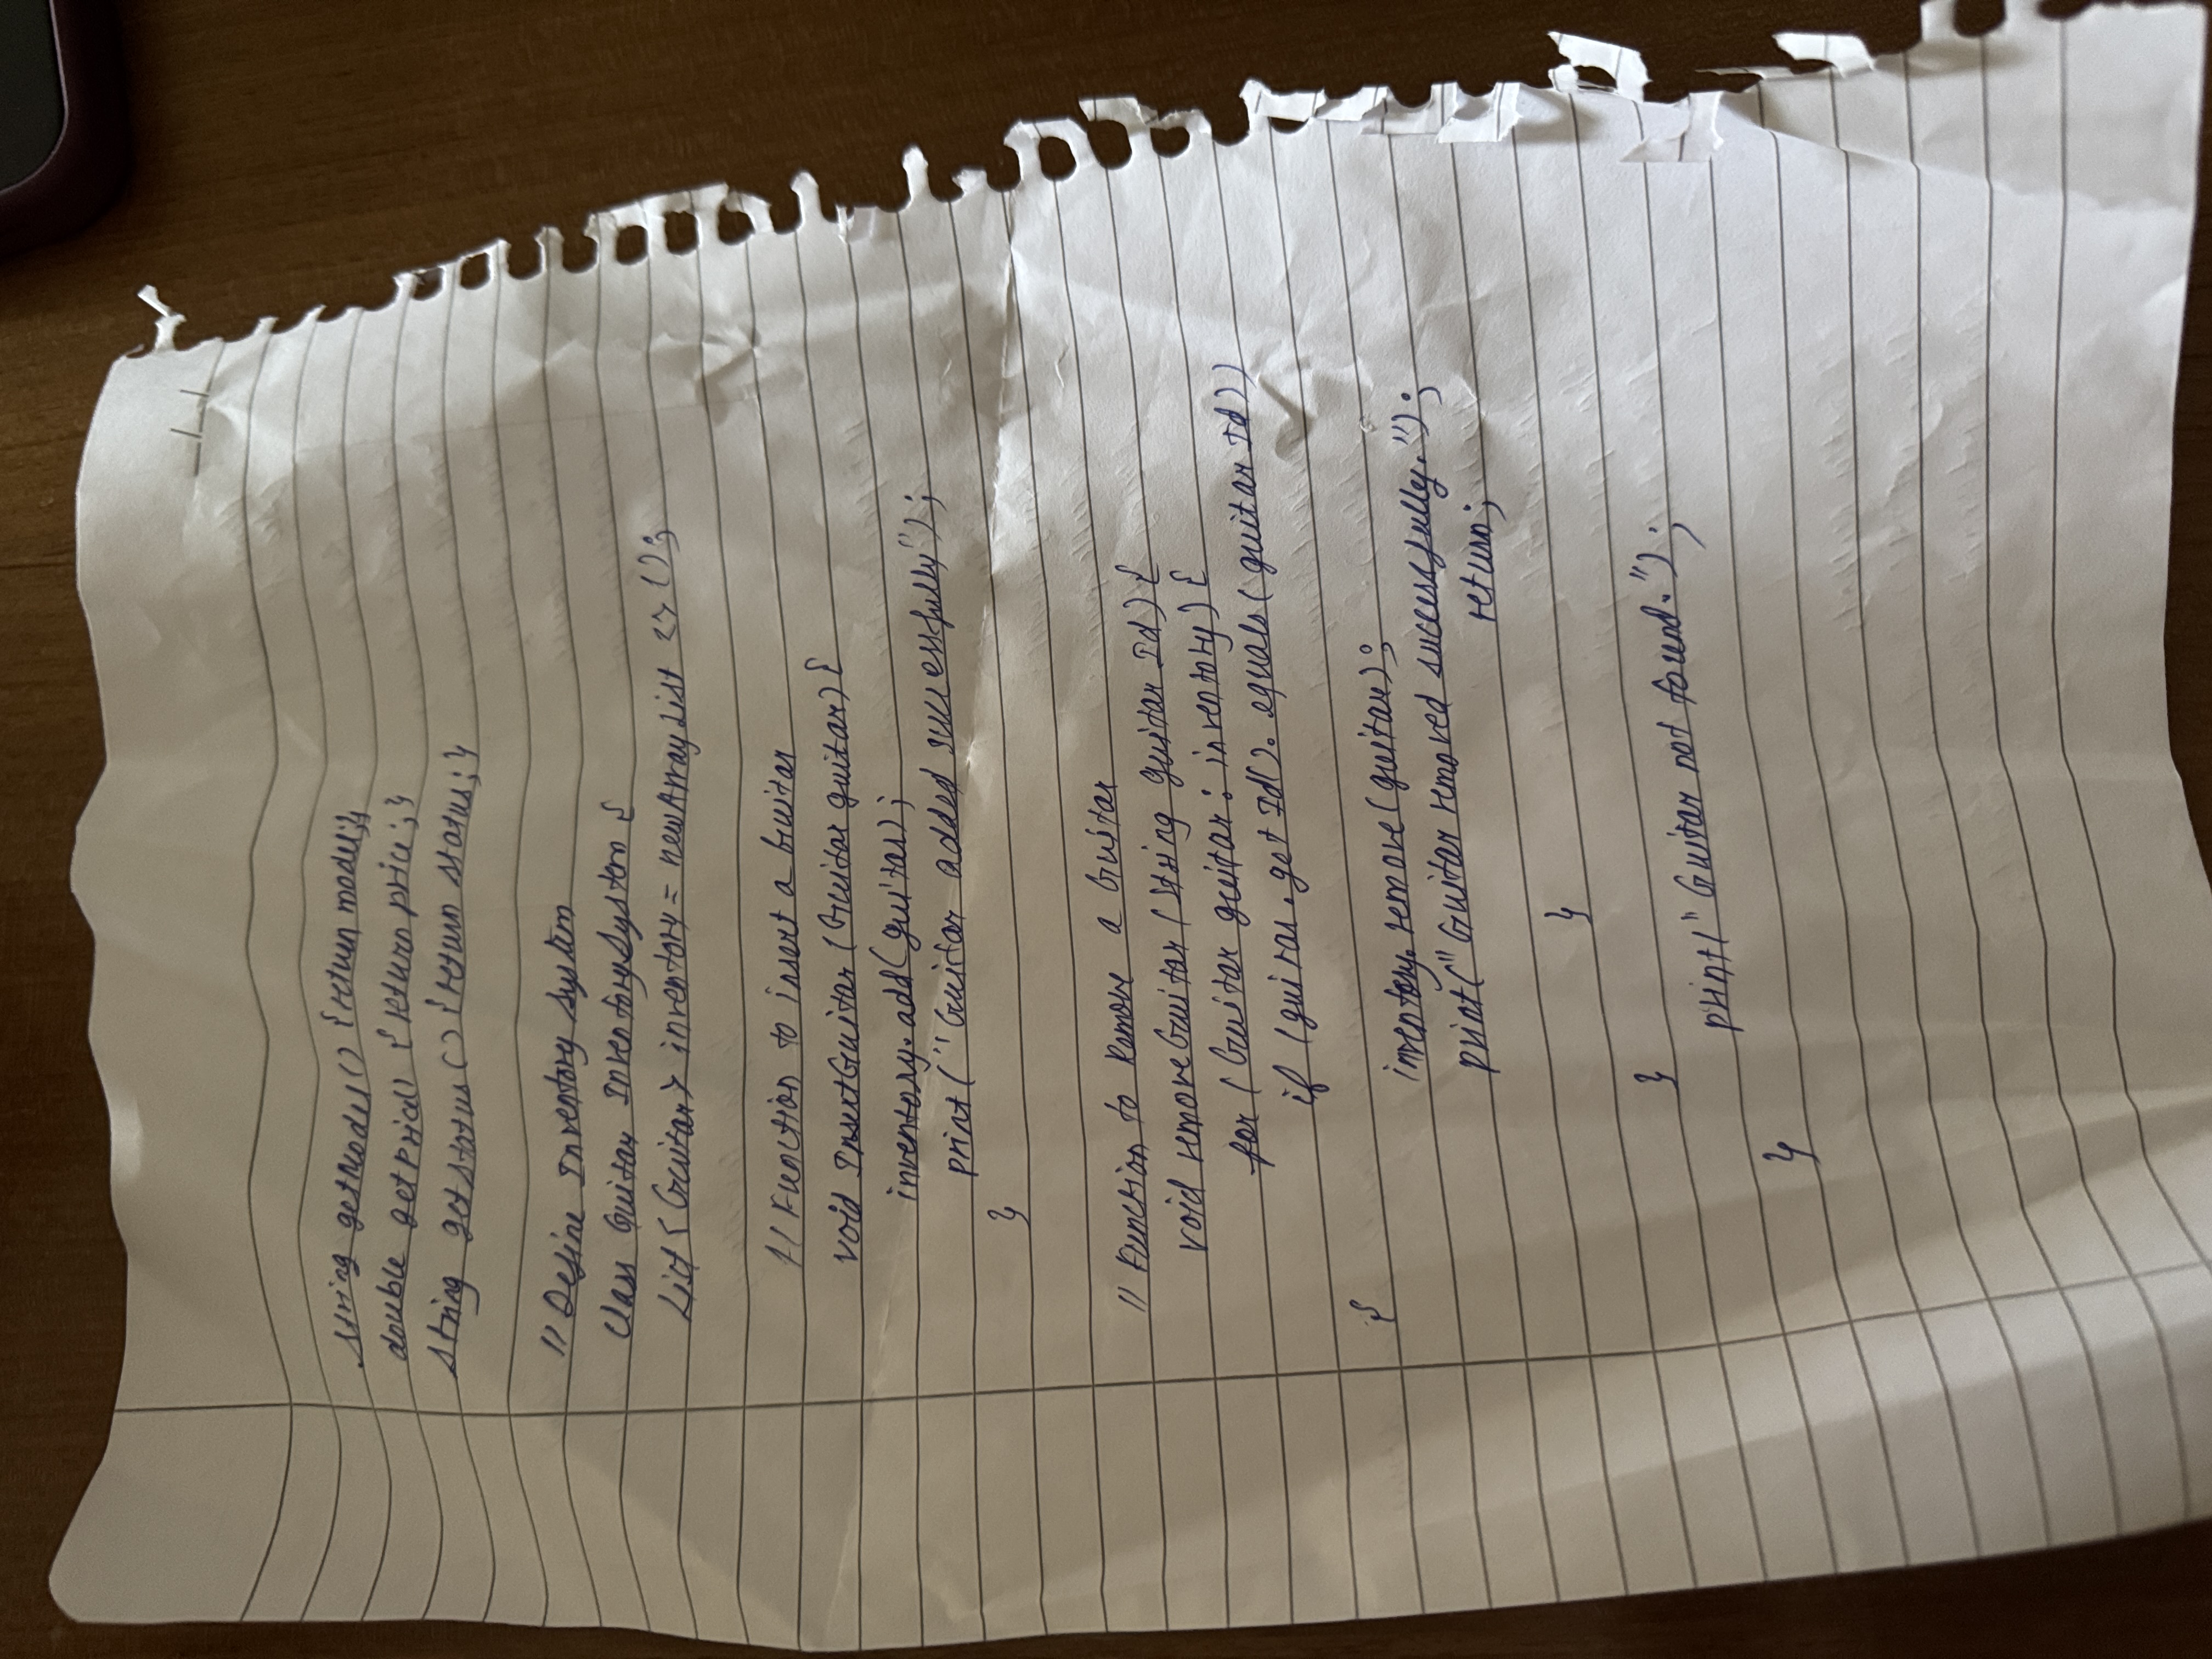 String getModel() {return model;}
double getPrice() {return price;}
String getStatus() {return status;}
// Define Inventory System
class Guitar InventorySystem {
List <Guitar> inventory = new ArrayList <> ();
// Function to insert a Guitar
void InsertGuitar (Guitar guitar) {
inventory.add(guitar);
print ("Guitar added successfully");
}
// Function to Remove a Guitar
void removeGuitar (String guitar Id) {
for (Guitar guitar : inventory) {
if (guitar.get Id(). equals (guitar Id))
{
inventory.remove(guitar);
print("Guitar removed successfully.");
return;
}
}
print("Guitar not found.");
}